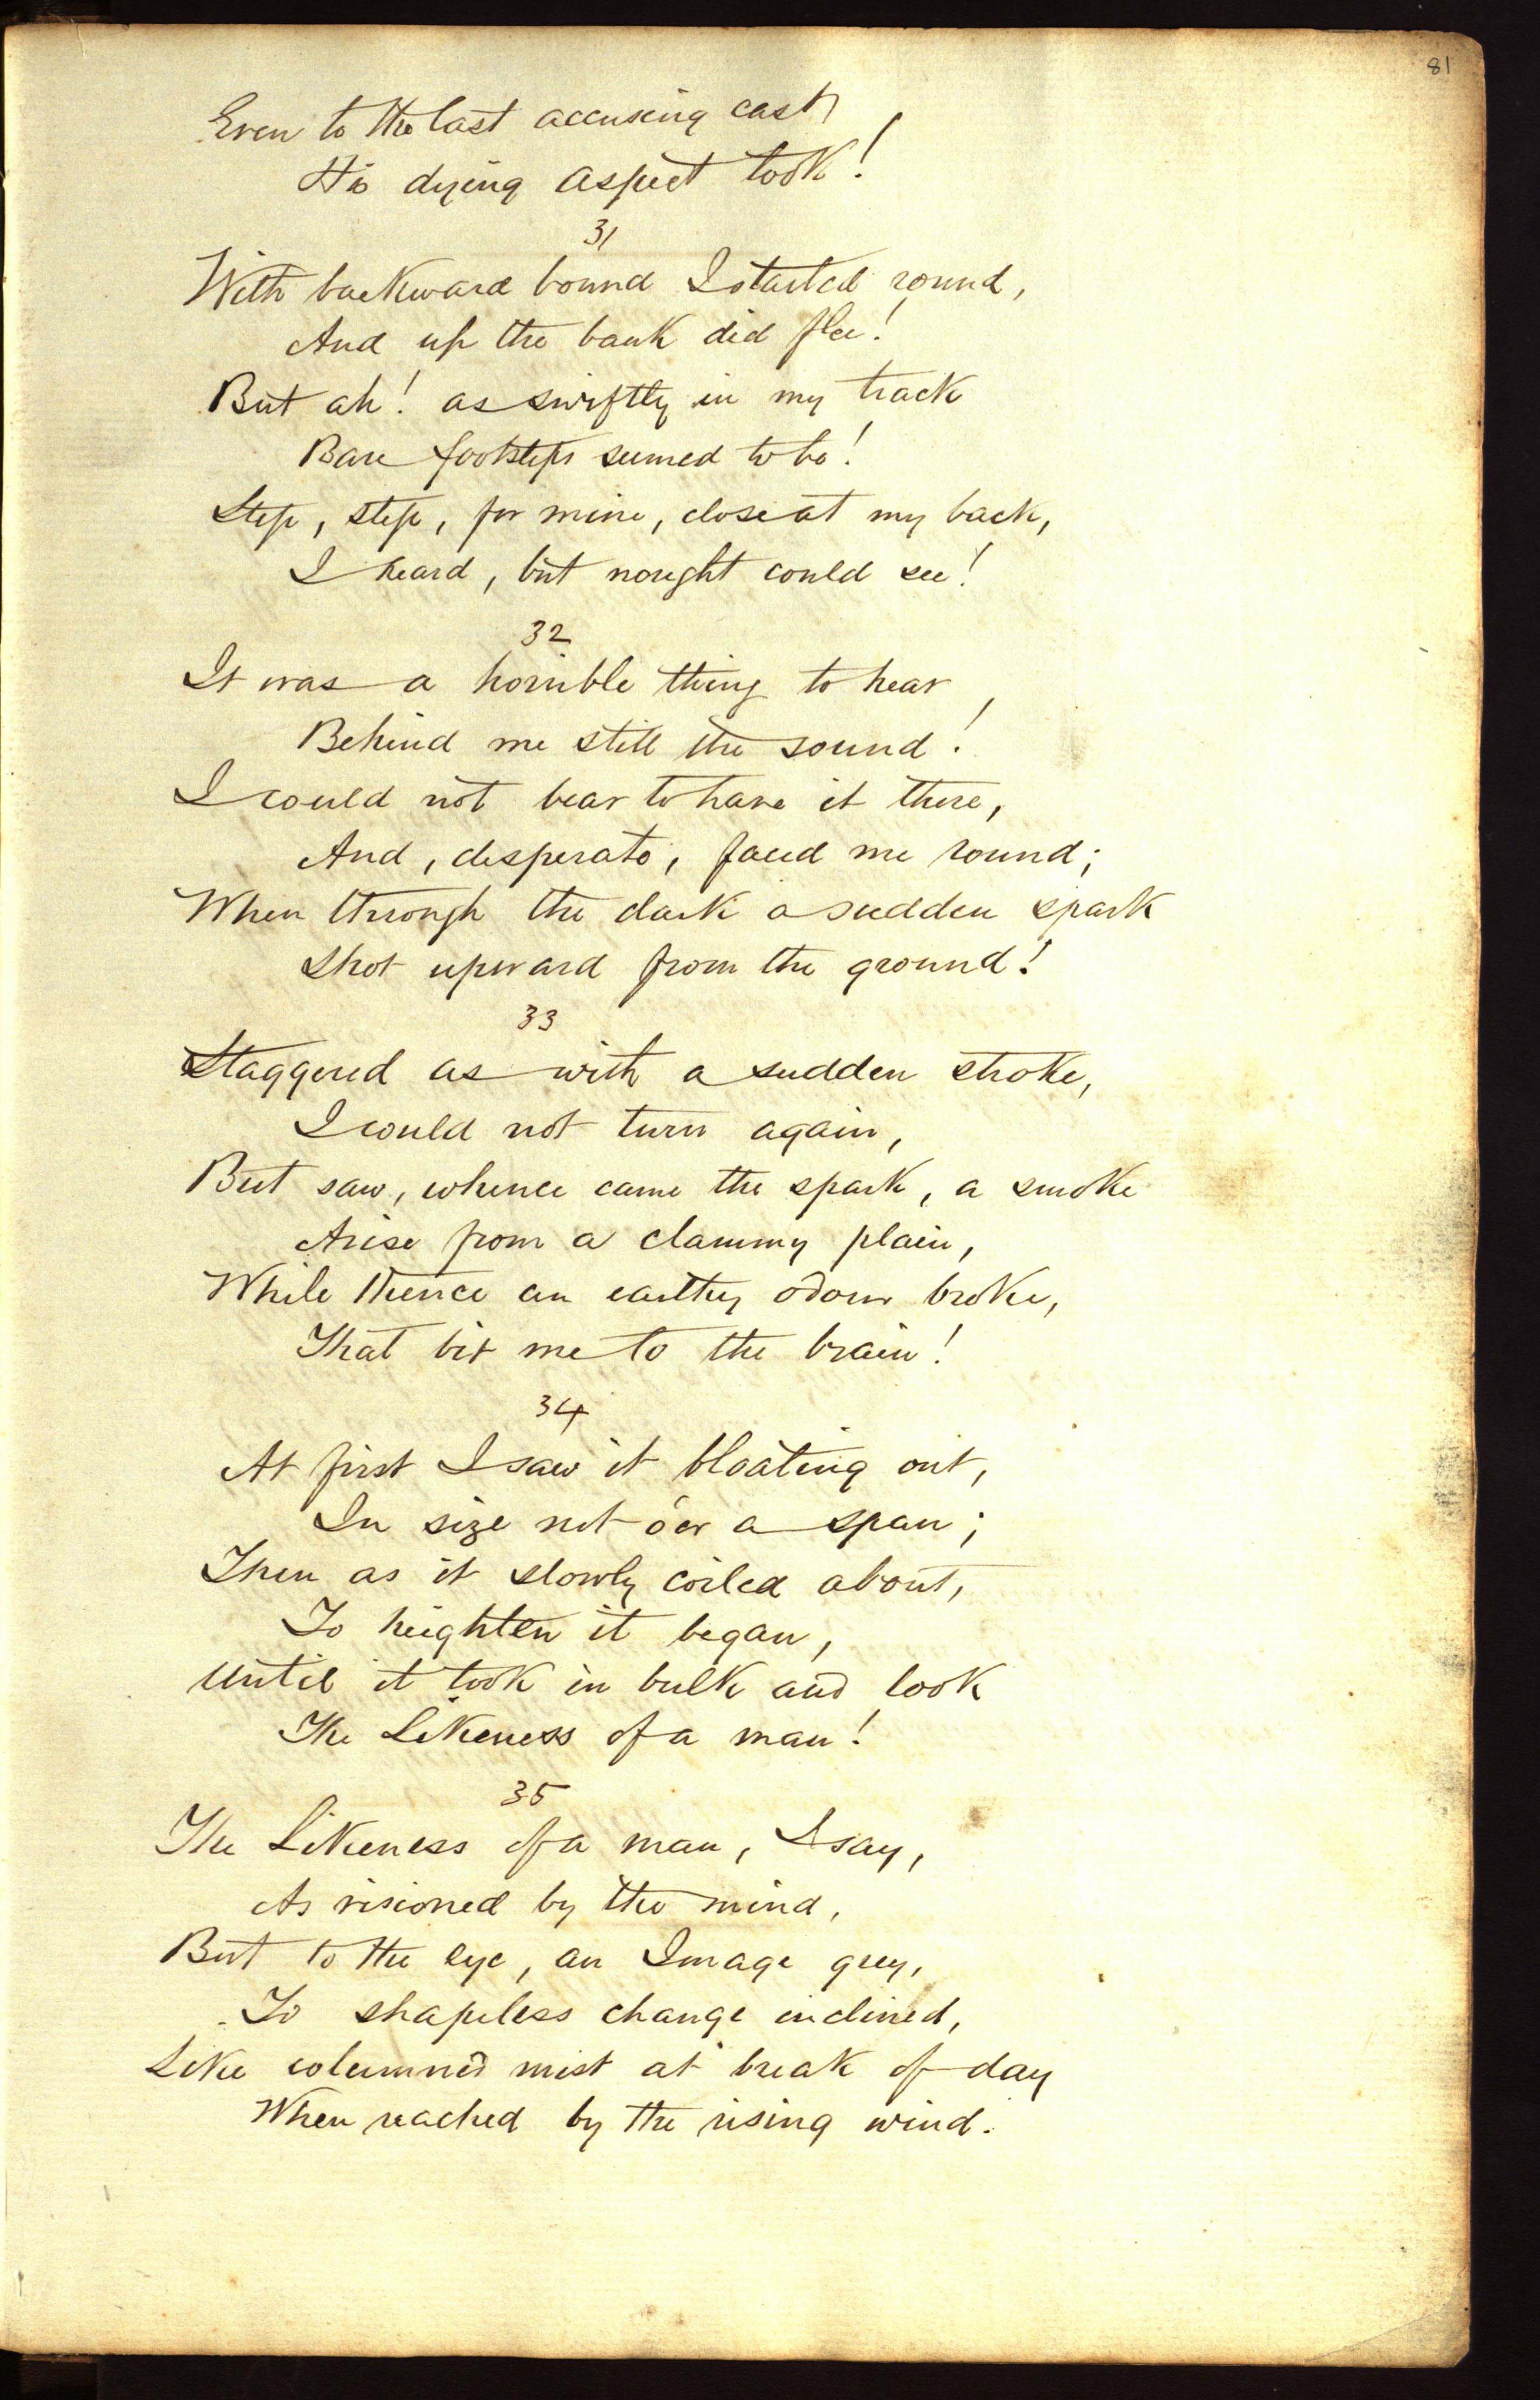 81
Even to the last accusing cast
His dying aspect took!
31
With backward bound I started round,
And up the bank did flee!
But ah! as swiftly in my track
Bare footsteps seemed to be!
Step, step, for mine, close at my back,
I heard, but nought could see!
32
It was a horrible thing to hear
Behind me still the sound!
I could not bear to have it there,
And, desperate, faced me round;
When through the dark a sudden spark
Shot upward from the ground!
33
Staggered as with a sudden stroke,
I could not turn again,
But saw, whence came the spark, a smoke
Arise from a clammy plain,
While thence an earthy odour broke,
That bit me to the brain!
34
At first I saw it bloating out,
In size not o'er a span;
Then as it slowly coiled about,
To heighten it began,
Until it took in bulk and look
The Likeness of a man!
35
The Likeness of a man, I say,
As visioned by the mind,
But to the eye, an Image grey,
To shapeless change inclined,
Like column'd mist at break of day
When reached by the rising wind.